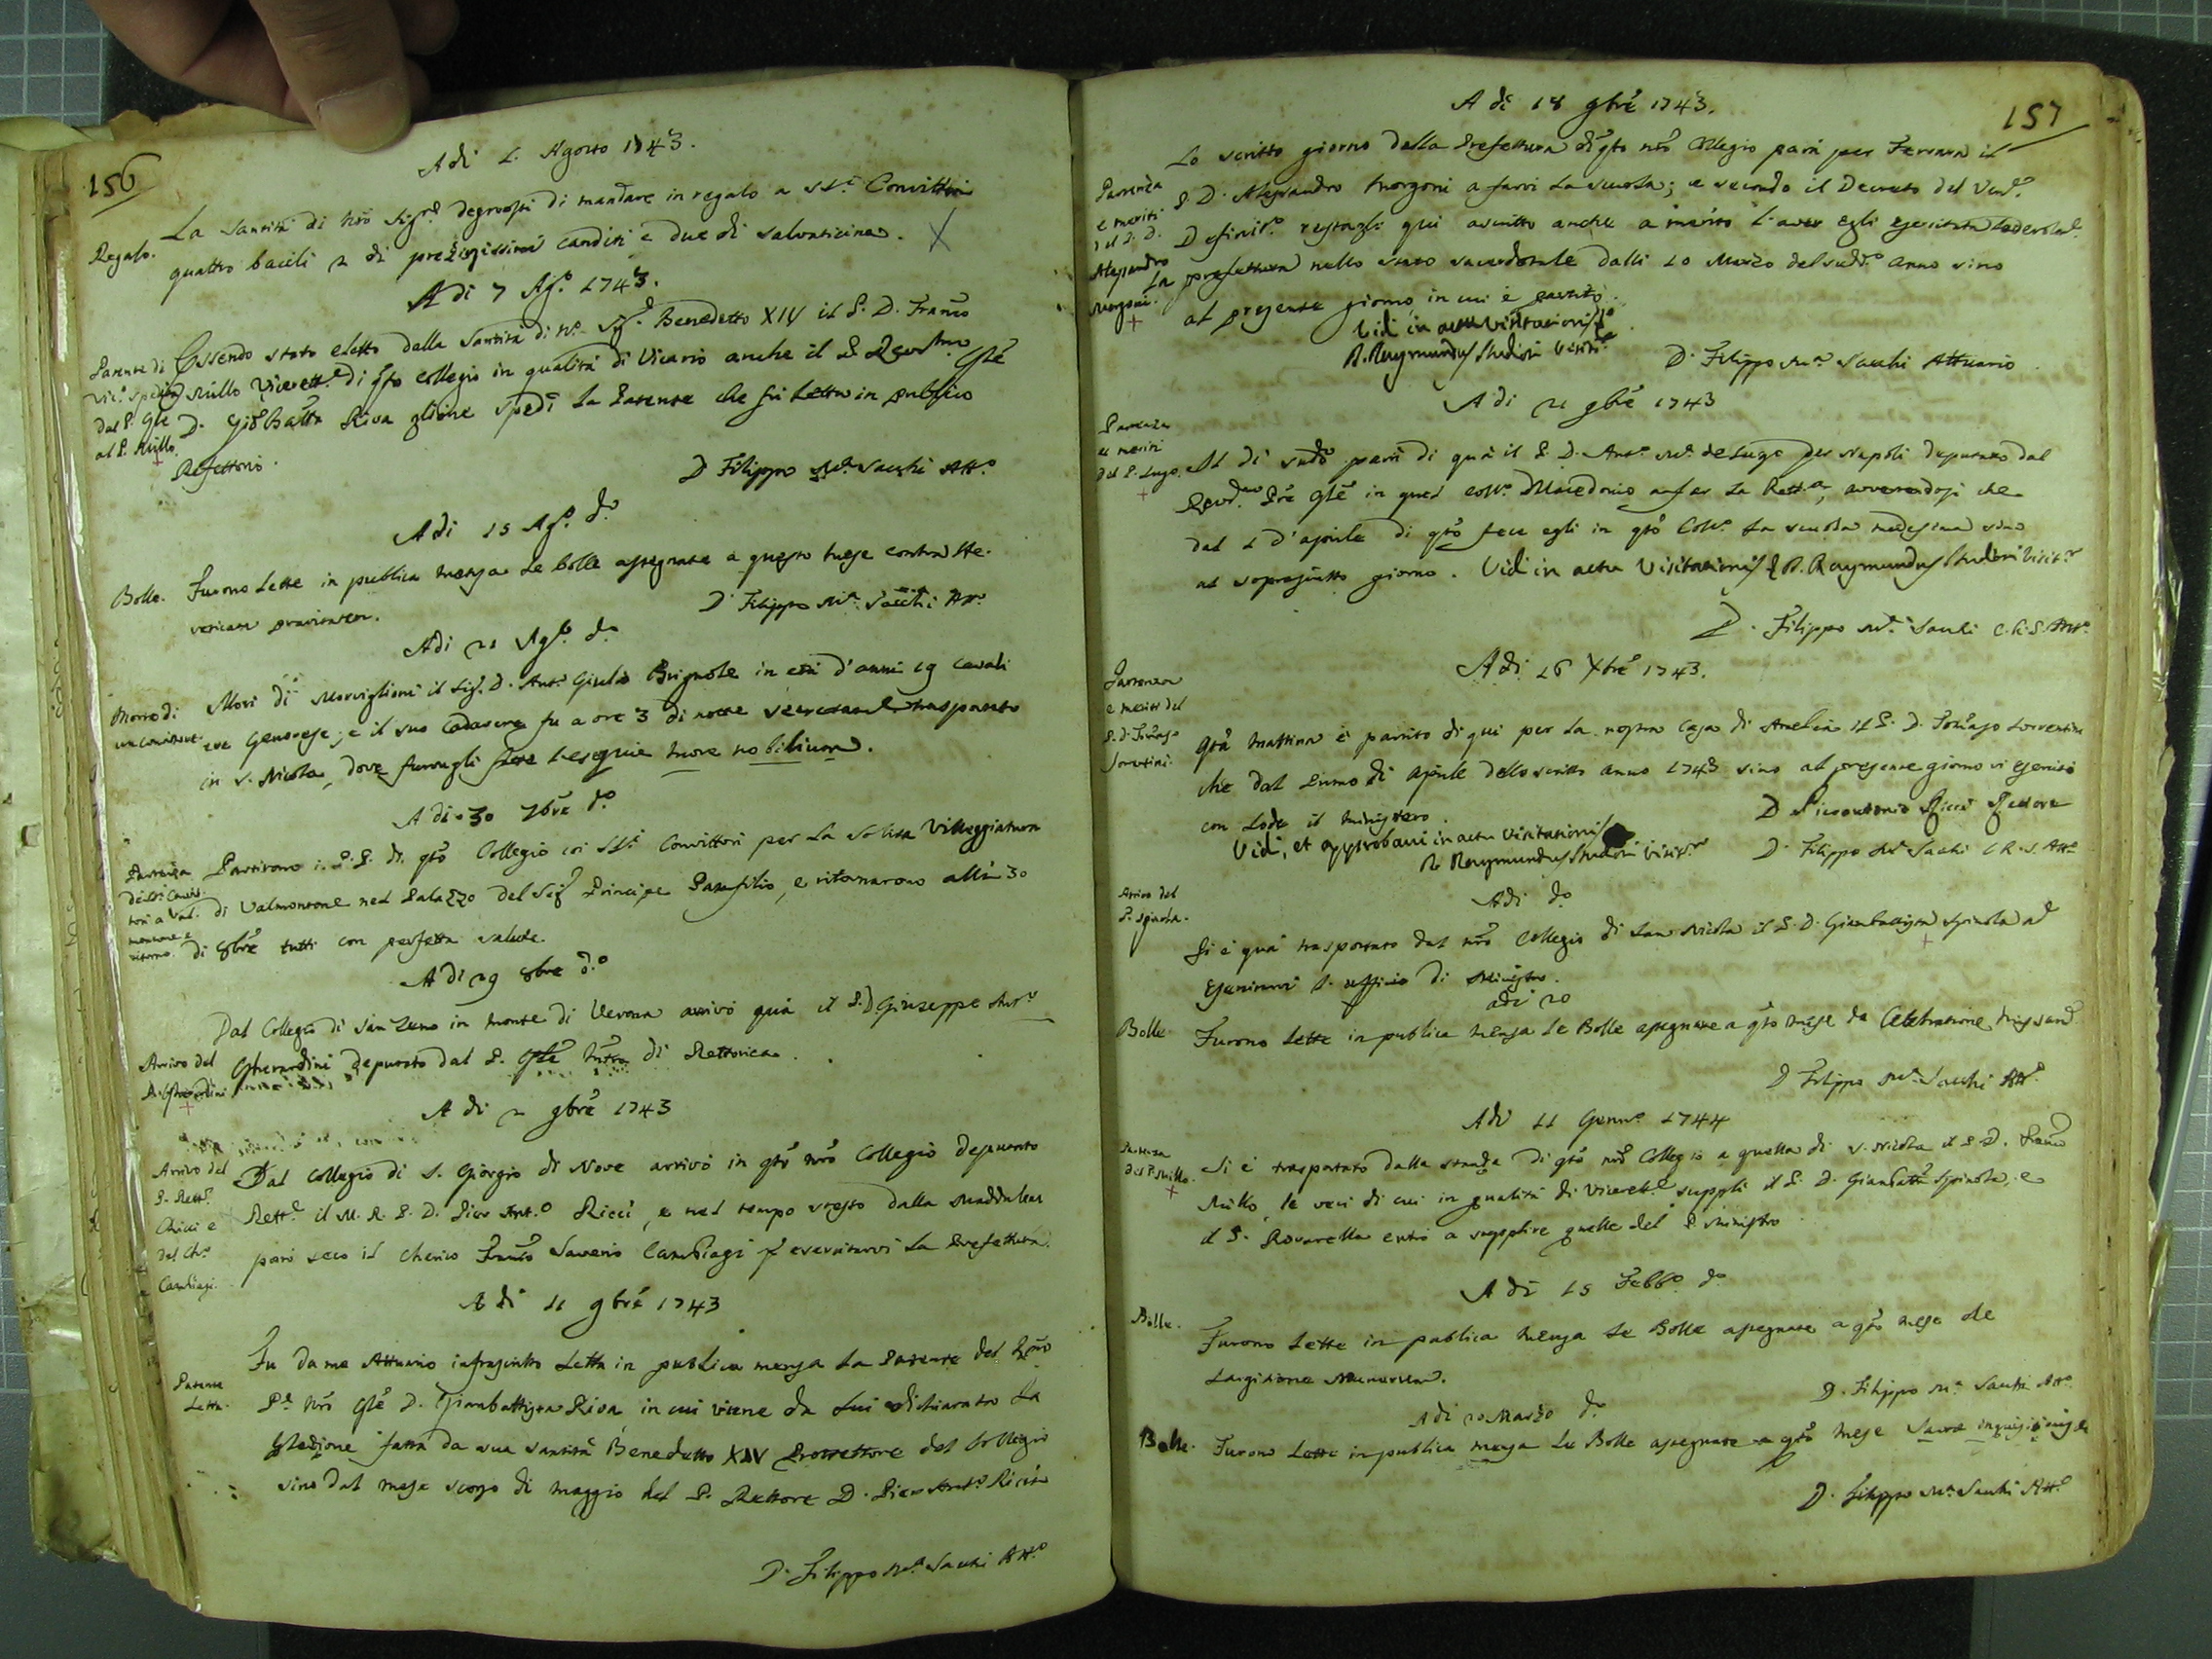 156
A di 1. Agosto 1743.
Regalo.
La Santità di Nrõ Sigre degnossi di mandare in regalo a SSri Convittori
quattro bacili 2 di preziosissimi canditi e due di salvaticine.
A di 7 Agº. 1743.
Patente di
Vicº spedita
dal P. Gle
al P. Rillo
Essendo stato eletto dalla Santità di Nº. Sigr. Benedetto XIV il P. D. Franco
Rillo Vicerettre di qto Collegio in qualità di Vicario anche il P. Revdmo Gle
D. Gio Batta Riva gliene spedì la Patente che fu letta in publico
Refettorio.
D Filippo Mª. Sacchi Attº
A di 15 Agº. dº
Bolle.
Furono lette in publica mensa le bolle assegnate a questo mese contra He-
reticam pravitatem.
D Filippo Mª. Sacchi Attº
A di 21 Agº. dº
Morte di
un Convittore
Morì di Morviglioni il Sigr. D. Antº Giulio Brignole in età d'anni 19 Cavali
ere Genovese; e il suo cadavere fu a ore 3 di notte trasportato
in S. Nicola, dove furongli fatte l'esequie more nobilium.
A di 30 7bre dº
Partenza
de SSri Convit
tori a Val
montone e
ritorno
Partirono i P.P. di qtõ Collegio coi SSri Convittori per la solita Villeggiatura
di Valmontone nel Palazzo del Sigr Principe Panfilio, e ritornarono alli 30
di 8brẽ tutti con perfetta salute.
A di 29 8bre dº
Arrivo del
P. Gherardini
Dal Collegio di San Zeno in Monte di Verona arrivò quà il P. D Giuseppe Mrª
Gherardini deputato dal P. Glẽ Mrõ di Rettorica.
A di 2 9brẽ 1743
Arrivo del
P. Rettº.
Ricci e
del Chº
Cambiagi.
Dal Collegio di S. Giorgio di Nove arrivò in qtõ nrõ Collegio deputato
Rettre il M. R. P. D. Pier Antº Ricci, e nel tempo stesso dalla Maddalena
partì seco il cherico Franco Saverio Cambiagi p esercitarvi la Prefettura.
A di 11 9brẽ 1743
Patente
Letta.
Fu da me Attuario infrascritto letta in publica mensa la Patente del Rmo
Pe. Nrõ Glẽ D. Giambattista Riva in cui viene da lui dichiarato la
Elezione fatta da sua Santità Benedetto XIV Protettore del Collegio
sino dal mese scorso di maggio nel P. Rettore D. Pier Antº Ricci
D. Filippo Mª Sacchi Attº
157
A di 18 9brẽ 1743.
Partenza
e meriti
del P. D.
Alessandro
Morgoni.
Lo scritto giorno dalla Prefettura di qto nrõ Collegio partì per Ferrara il
P. D. Alessandro Morgoni a farvi la scuola; e secondo il Decreto del Vene.
Definirº. restagli qui ascritto anche a merito l'aver egli esercitata lodevolmte
la prefettura nello stato sacerdotale dalli 10 Marzo del suddº anno sino
al presente giorno in cui è partito.
Vidi in actu Visitationis
R. Raymundus Studiosi Visitr
D. Filippo Mª. Sacchi Attuario
A di 21 9brẽ 1743
Partenza
et meriti
del P. Lugo.
Il dì sudº partì di quà il P. D. Antº Mª. de Lugo per Napoli deputato dal
Revdmo Prẽ Glẽ in quel Collº. Macedonio a far la Rettca, avvertendosi che
dal 1 d'aprile di qtõ fece egli in qtõ Collº. la scuola medesima sino
al soprascritto giorno. Vidi in actu Visitationis R. Raymundus Studiosi Visitr
D. Filippo Mª. Sacchi C.R.S. Attº.
A di 16 Xbrẽ 1743.
Partenza
e meriti del
P. D. Tomaso
Sorrentini.
Qtã Mattina è partito di qui per la nostra Casa di Amelia il P. D. Tomaso Sorrentini
che dal primo di Aprile dello scritto anno 1743 sino al presente giorno vi esercitò
con lode il ministero.
D Pierantonio Ricci Rettore
Vidi, et approbavi in actu Visitationis
R. Raymundus Studiosi Visitr
D. Filippo Mª Sacchi C.R.S. Attº
A di dº
Arrivo del
P. Spinola.
Si è quà trasportato dal nrõ Collegio di San Nicola il P. D. Giambattista Spinola ad
esercitarvi l'ufficio di Ministro.
adi 20
Bolle
Furono lette in publica mensa le Bolle assegnate a qto mese da Celebratione Missarũ
D Filippo Mª. Sacchi Attº.
A di 11 Gennº. 1744
Partenza
del P. Rillo.
Si è trasportato dalla stanza di qtõ nrõ Collegio a quella di S. Nicola il P. D. Franco
Rillo, le veci di cui in qualità di Vicerette supplì il P. D. Giambattª Spinola, e
il P. Rovarella entrò a supplire quelle del P. Ministro
A di 15 Febbº. dº
Bolle.
Furono lette in publica mensa le Bolle assegnate a qtõ mese de
Largitione Munerum.
D. Filippo Mª. Sacchi Attº
A di 20 Marzo dº
Bolle.
Furono lette in publica mensa le Bolle assegnate a qtõ mese Sacre inquisitionis
D. Filippo Mª. Sacchi Attº